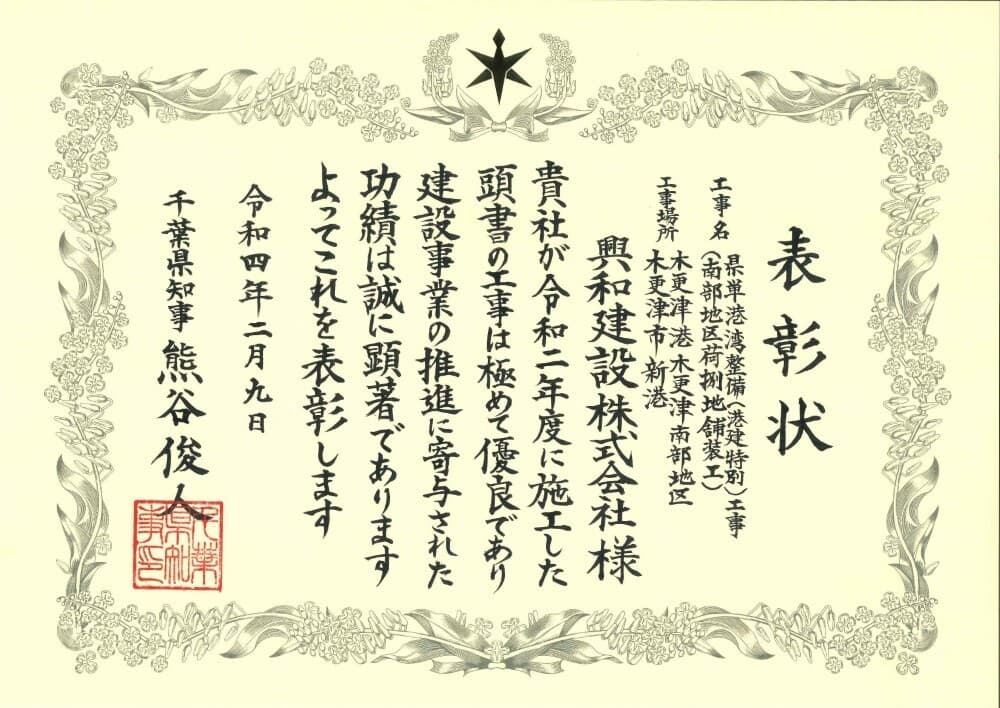 表彰状
工事名 県単港湾整備(港建特別)工事
(南部地区荷捌地舗装工)
工事場所 木更津港木更津南部地区
木更津市新港
興和建設株式会社様
貴社が令和二年度に施工した
頭書の工事は極めて優良であり
建設事業の推進に寄与された
功績は誠に顕著であります
よってこれを表彰します
令和四年二月九日
千葉県知事 熊谷俊人
千葉県知事印